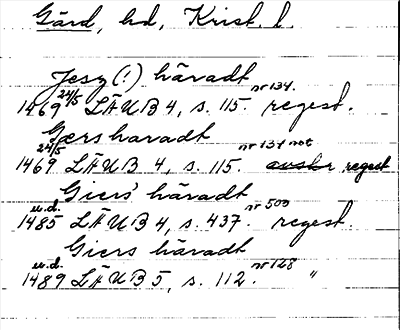 Gärd, hd, Krist. l.
Jesz (!) häradt
1469 24/5 LÄUB 4, s. 115. nr 134. regest.
Gærs haradt
1469 24/5 LÄUB 4, s. 115. nr 134 not avskr regest
Giers häradt
1485 u.d. LÄUB 4, s. 437. nr 500 regest.
Giers häradt
1489 u.d. LÄUB 5, s. 112. nr 128 "